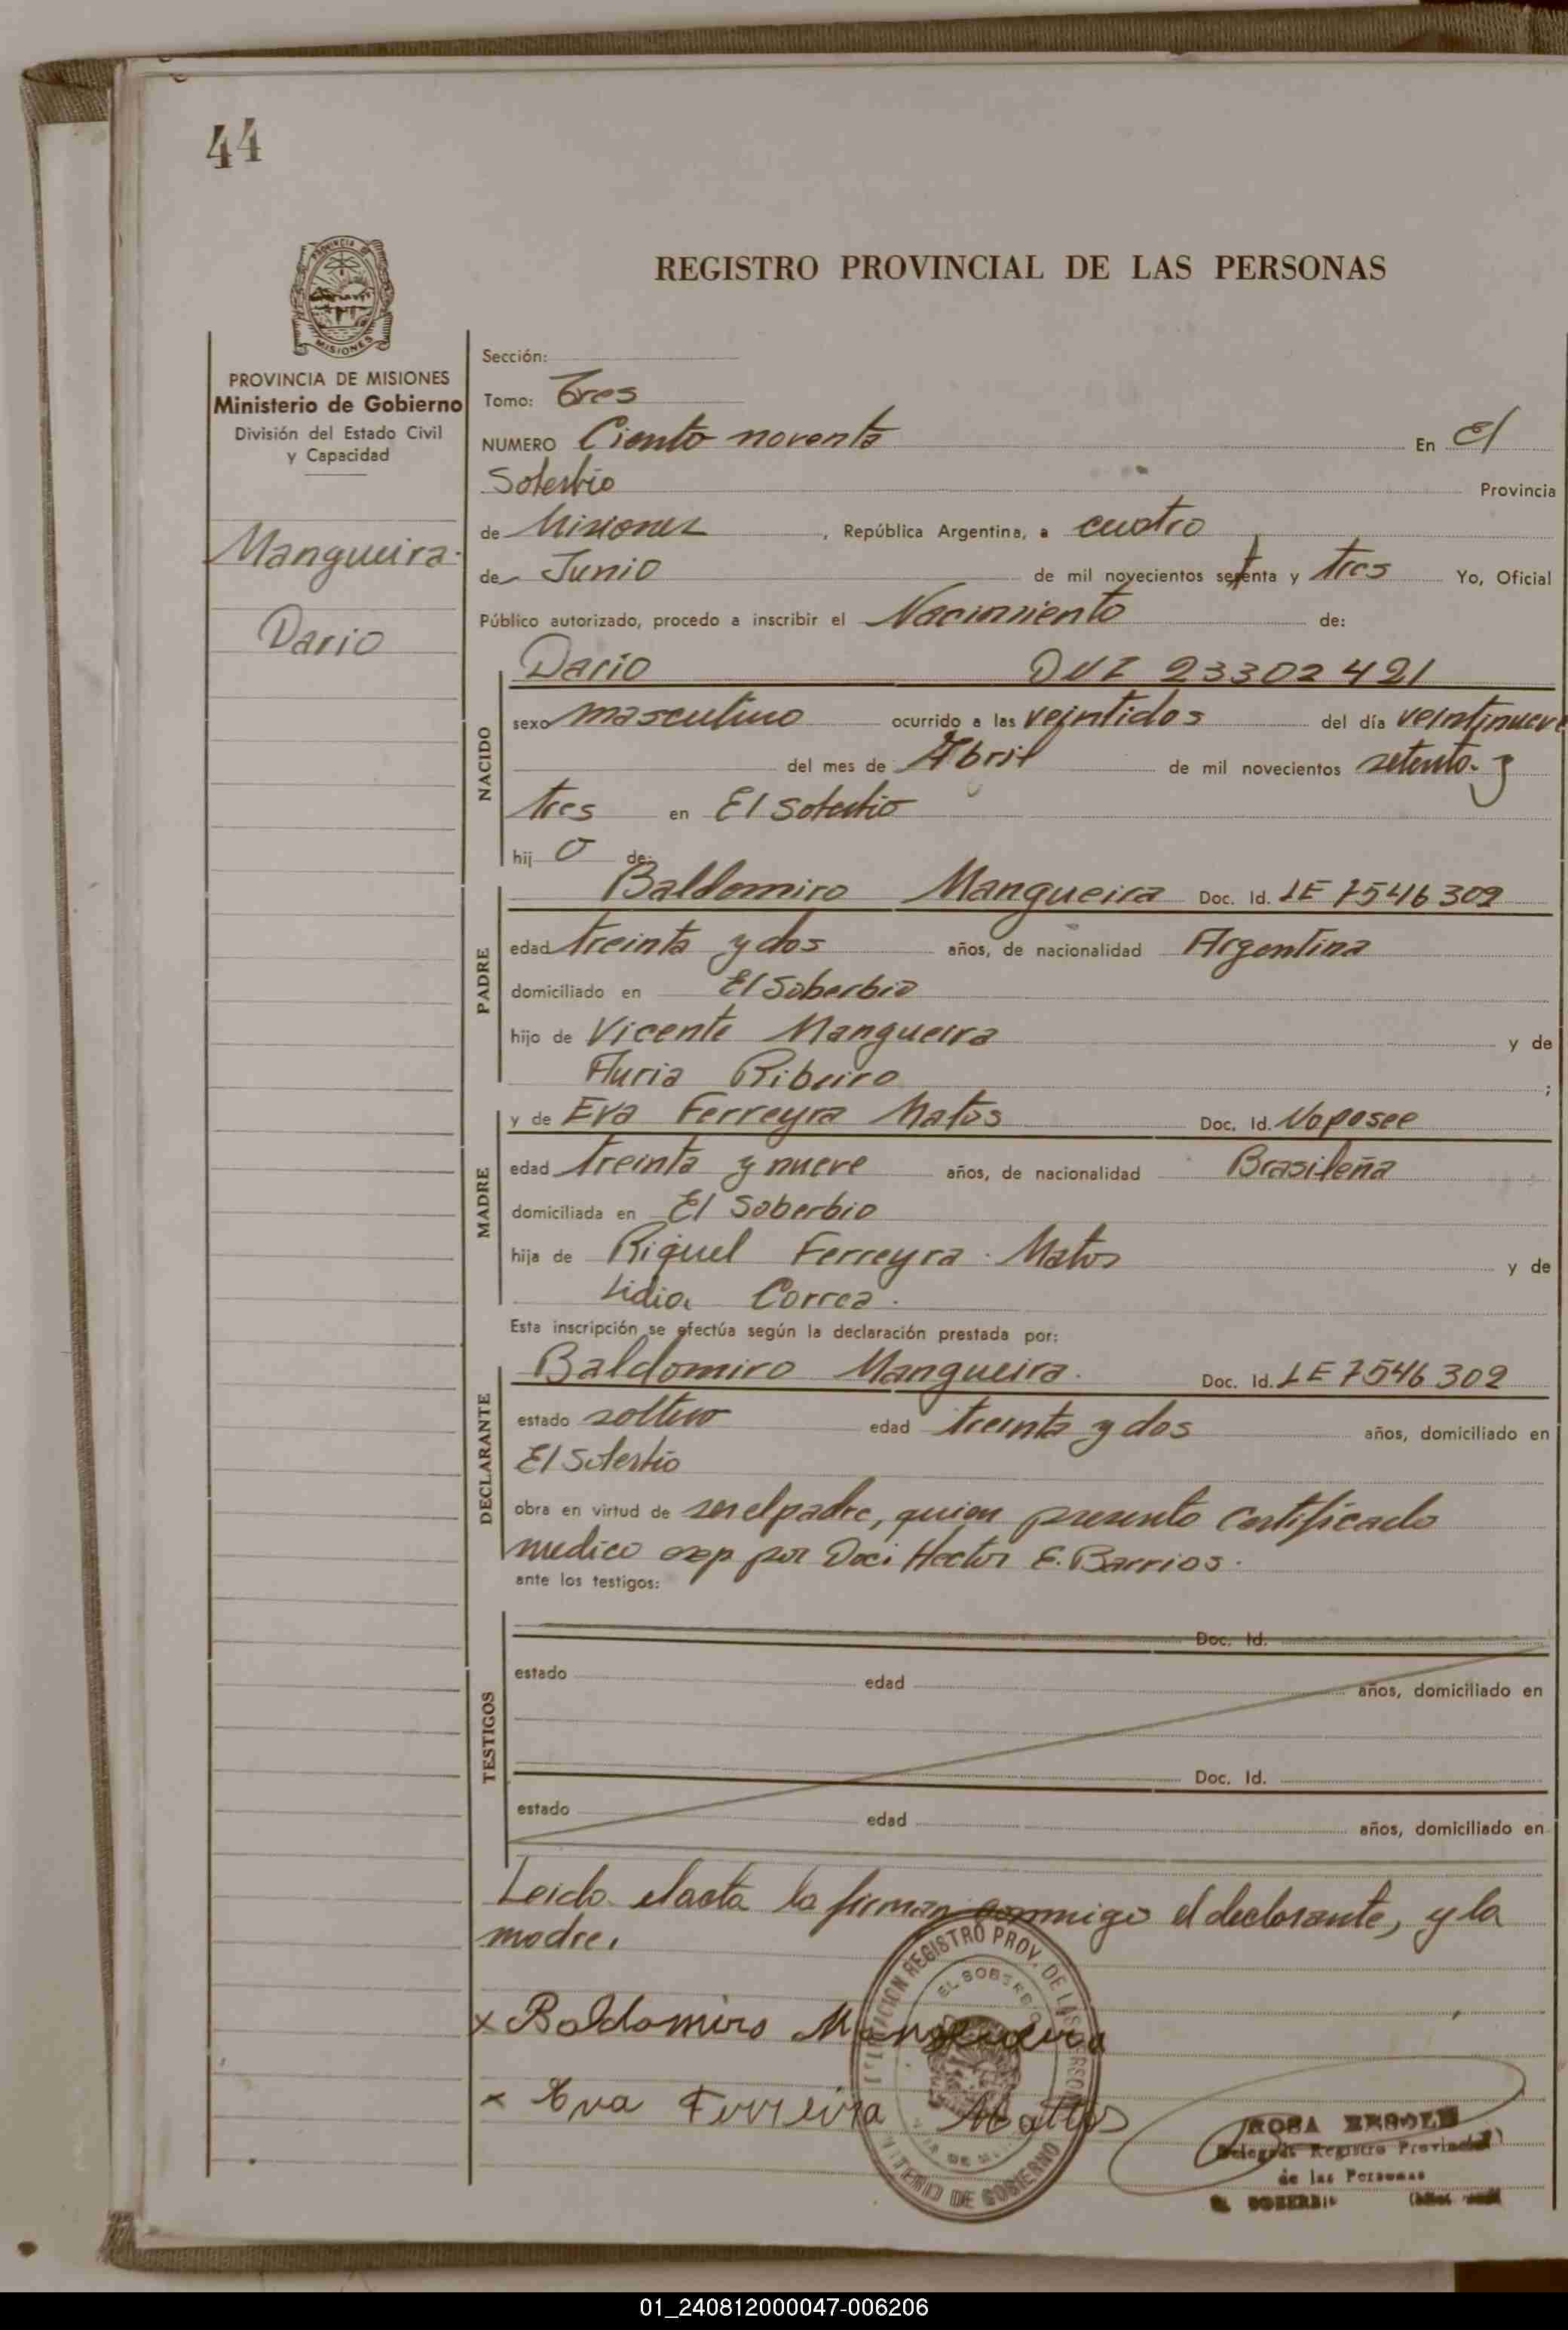 44
REGISTRO PROVINCIAL DE LAS PERSONAS
PROVINCIA DE MISIONES
Ministerio de Gobierno
División del Estado Civil
y Capacidad
Mangueira
Dario
Sección:
Tomo: Tres
NUMERO Ciento noventa En El
Soberbio Provincia
de Misiones, República Argentina, a cuatro
de Junio de mil novecientos setenta y tres Yo, Oficial
Público autorizado, procedo a inscribir el Nacimiento de:
NACIDO
Dario 23302421
sexo masculino ocurrido a las veintidos del día veintinueve
del mes de Abril de mil novecientos setenta y
tres en El Soberbio
hijo de:
PADRE
Baldomiro Mangueira Doc. Id. LE 7546302
edad treinta y dos años, de nacionalidad Argentina
domiciliado en El Soberbio
hijo de Vicente Mangueira y de
Ribeiro ;
MADRE
y de Eva Ferreyra Matos Doc. Id. No posee
edad treinta y nueve años, de nacionalidad Brasileña
domiciliada en El Soberbio
hija de Riguel Ferreyra Matos y de
Lidia Correa.
Esta inscripción se efectúa según la declaración prestada por:
DECLARANTE
Baldomiro Mangueira. Doc. Id. LE 7546302
estado soltero edad treinta y dos años, domiciliado en
El Soberbio
obra en virtud de ser el padre, quien presento certificado
medico exp por Doc: Hector E. Barrios.
ante los testigos:
TESTIGOS
Doc. Id.
estado edad años, domiciliado en
Doc. Id.
estado edad años, domiciliado en
Leido el acta la firman conmigo el declarante, y la
madre.
x Baldomiro Mangueira
x Eva Ferreira Mattos
DELEGACION REGISTRO PROV. DE LAS PERSONAS
EL SOBERBIO
MINISTERIO DE GOBIERNO
ROSA
Delegada Registro Provincial
de las Personas
EL SOBERBIO
01_240812000047-006206